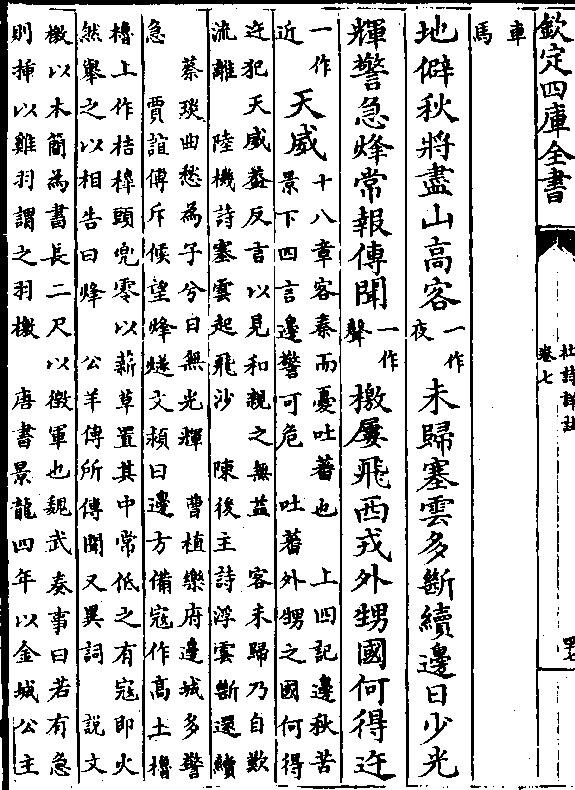 欽定四庫全書
杜詩詳註
卷七
車
馬
地僻秋將盡山高客一作夜未歸塞雲多斷續邊日少光
輝警急烽常報傳聞一作聲檄屢飛西戎外甥國何得迕
一作近天威
十八章客秦而憂吐蕃也　上四記邊秋苦
景下四言邊警可危　吐蕃外甥之國何得
迕犯天威蓋反言以見和親之無益　客未歸乃自歎
流離　陸機詩塞雲起飛沙　陳後主詩浮雲斷還續
蔡琰曲愁為子兮日無光輝　曹植樂府邊城多警
急　賈誼傳斥候望烽燧文頴曰邊方備寇作高土櫓
櫓上作桔橰頭兜零以薪草置其中常低之有寇即火
然舉之以相告曰烽　公羊傳所傳聞又異詞　說文
檄以木簡為書長二尺以徵軍也魏武奏事曰若有急
則揷以雞羽謂之羽檄　唐書景龍四年以金城公主